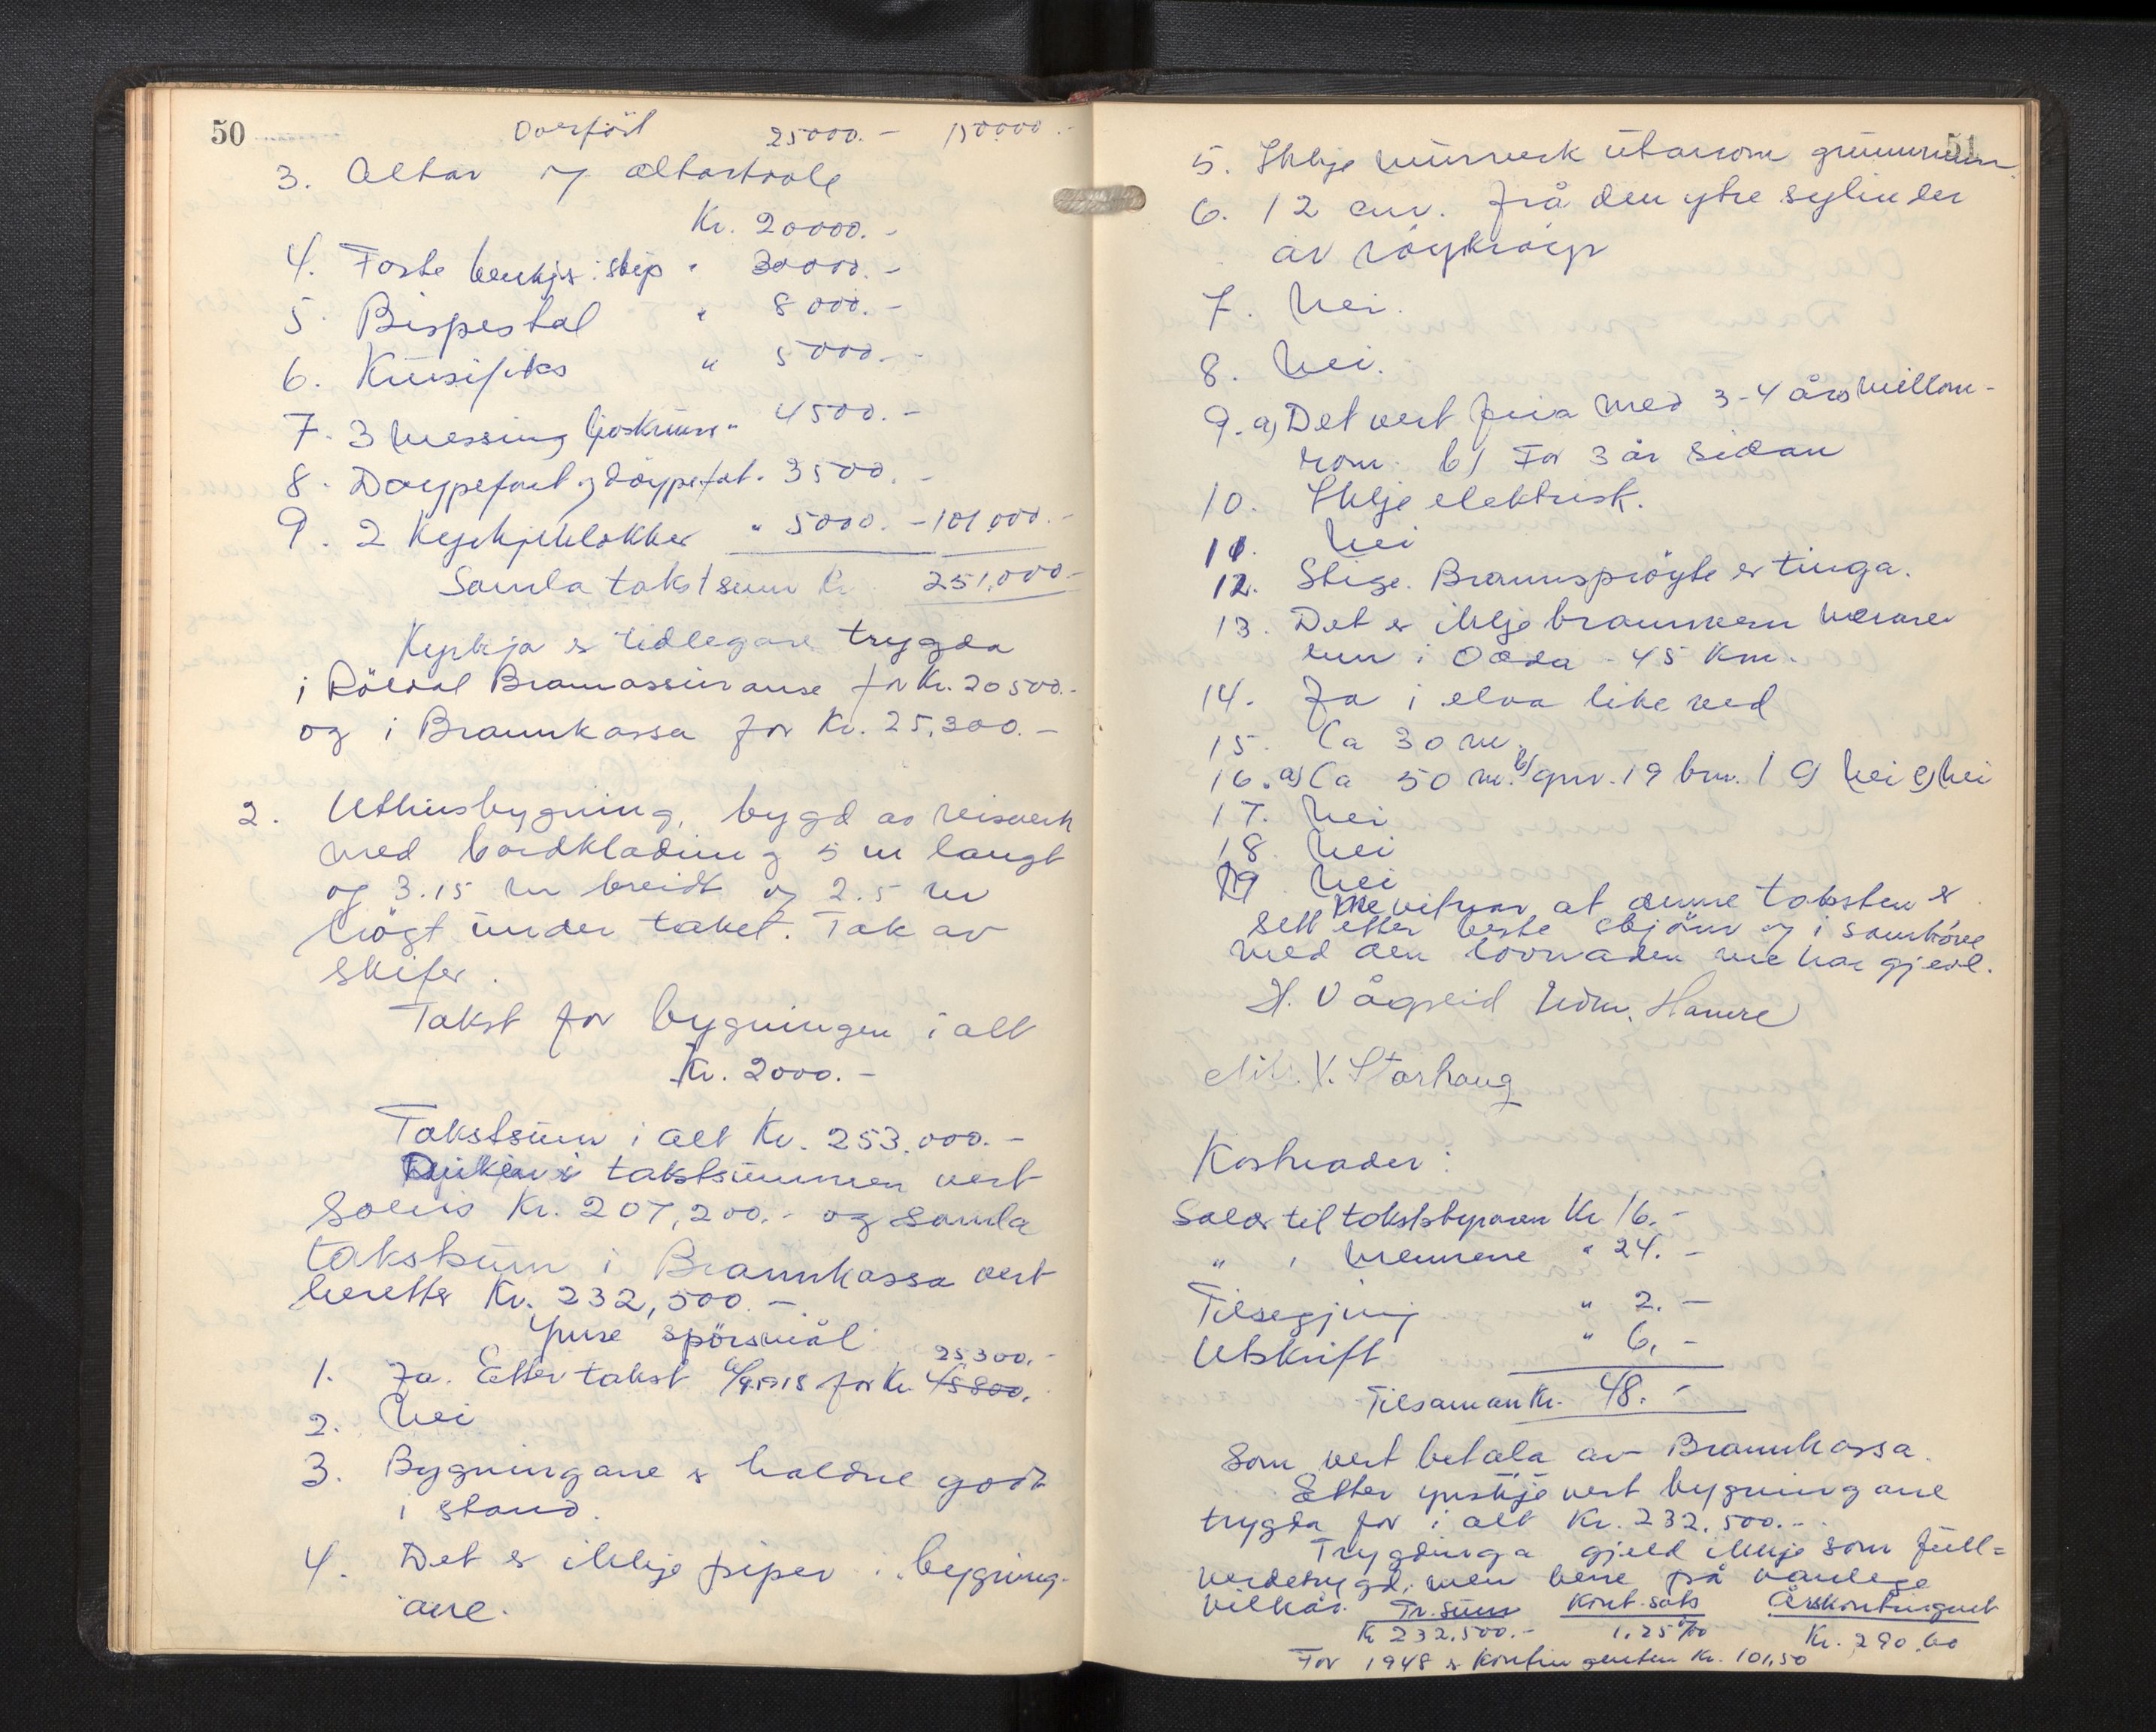 50
Overført 25000.- 150000.-
3. Altar og altartavle
Kr. 20000.-
4. Faste benkjer i skip " 30000.-
5. Bispestol " 8000.-
6. Krusifiks " 5000.-
7. 3 messing ljoskruner " 4500.-
8. Døypefont og døypefat " 3500.-
9. 2 Kyrkjeklokker " 5000.- 101.000.-
Samla takstsum Kr. 251.000.-
Kyrkja er tidlegare trygda
i Røldal Brannassuranse for Kr. 20500.-
og i Brannkassa for Kr. 25,300.-
2. Uthusbygning, bygd av reisverk
med bordkladning 5 m langt
og 3.15 m breidt og 2.5 m
høgt under taket. Tak av
skifer.
Takst for bygningen i alt
Kr. 2000.-
Takstsum i alt Kr. 253.000.-
takstsummen vert
soleis Kr. 207,200.- og samla
takstsum i Brannkassa vert
heretter Kr. 232,500.-
Ymse spørsmål
25,300.-
1. Ja. Etter takst 1918 for Kr. 45800.
2. Nei
3. Bygningane er haldne godt
i stand.
4. Det er ikkje piper i bygning-
ane.
51
5. Ikkje murverk utanom grunnmur.
6. 12 cm. frå den ytre sylinder
av røykrøyr
7. Nei.
8. Nei.
9. a) Det vert feia med 3-4 års millom-
rom. b) For 3 år sidan
10. Ikkje elektrisk.
11. Nei
12. Stige. Brannsprøyte er tinga.
13. Det er ikkje brannvern nærare
enn i Odda - 45 Km.
14. Ja i elva like ved
15. Ca 30 m.
16. a) Ca 50 m. b) gnr. 19 bnr. 1 c) Nei e) Nei
17. Nei
18. Nei
19. Nei
Me vitnar at denne taksten er
sett etter beste skjøn og i samhøve
med den lovnaden me har gjeve.
H. Vågseid Edm. Hamre
Nils V. Storhaug
Kostnader:
Salær til takststyraren Kr 16.-
" " mennene " 24.-
Tilsegjing " 2.-
Utskrift " 6.-
Tilsaman Kr. 48.-
Som vert betala av Brannkassa.
Etter ynskje vert bygningane
trygda for i alt Kr. 232.500.-
Trygdinga gjeld ikkje som full=
verdetrygd, men berre på vanlege
vilkår. Tr.sum Kont.sats Årskontingent
Kr 232,500.- 1.25‰ Kr. 290.60
For 1948 er kontingenten Kr. 101,50